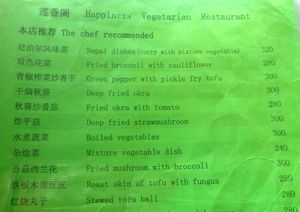 莲香阁 Happiness Vegetarian Restaurant
本店推荐 The chef recommended
尼泊尔风味菜 Nepal dishes(curry with mixture vegetable) 320
双色花菜 Fried broccoli with cauliflower 280
青椒榨菜炒香干 Green pepper with pickle fry tofu 300
干煸秋葵 Deep fried okra 300
秋葵炒番茄 Fried okra with tomato 280
炸平菇 Deep fried strawmushroom 300
水煮蔬菜 Boiled vegetables 300
杂烩菜 Mixture vegetable dish 240
香菇西兰花 Fried mushroom with broccoli 300
铁板木须豆皮 Roast skin of tofu with fungus 280
红烧丸子 Stewed tofu ball 280